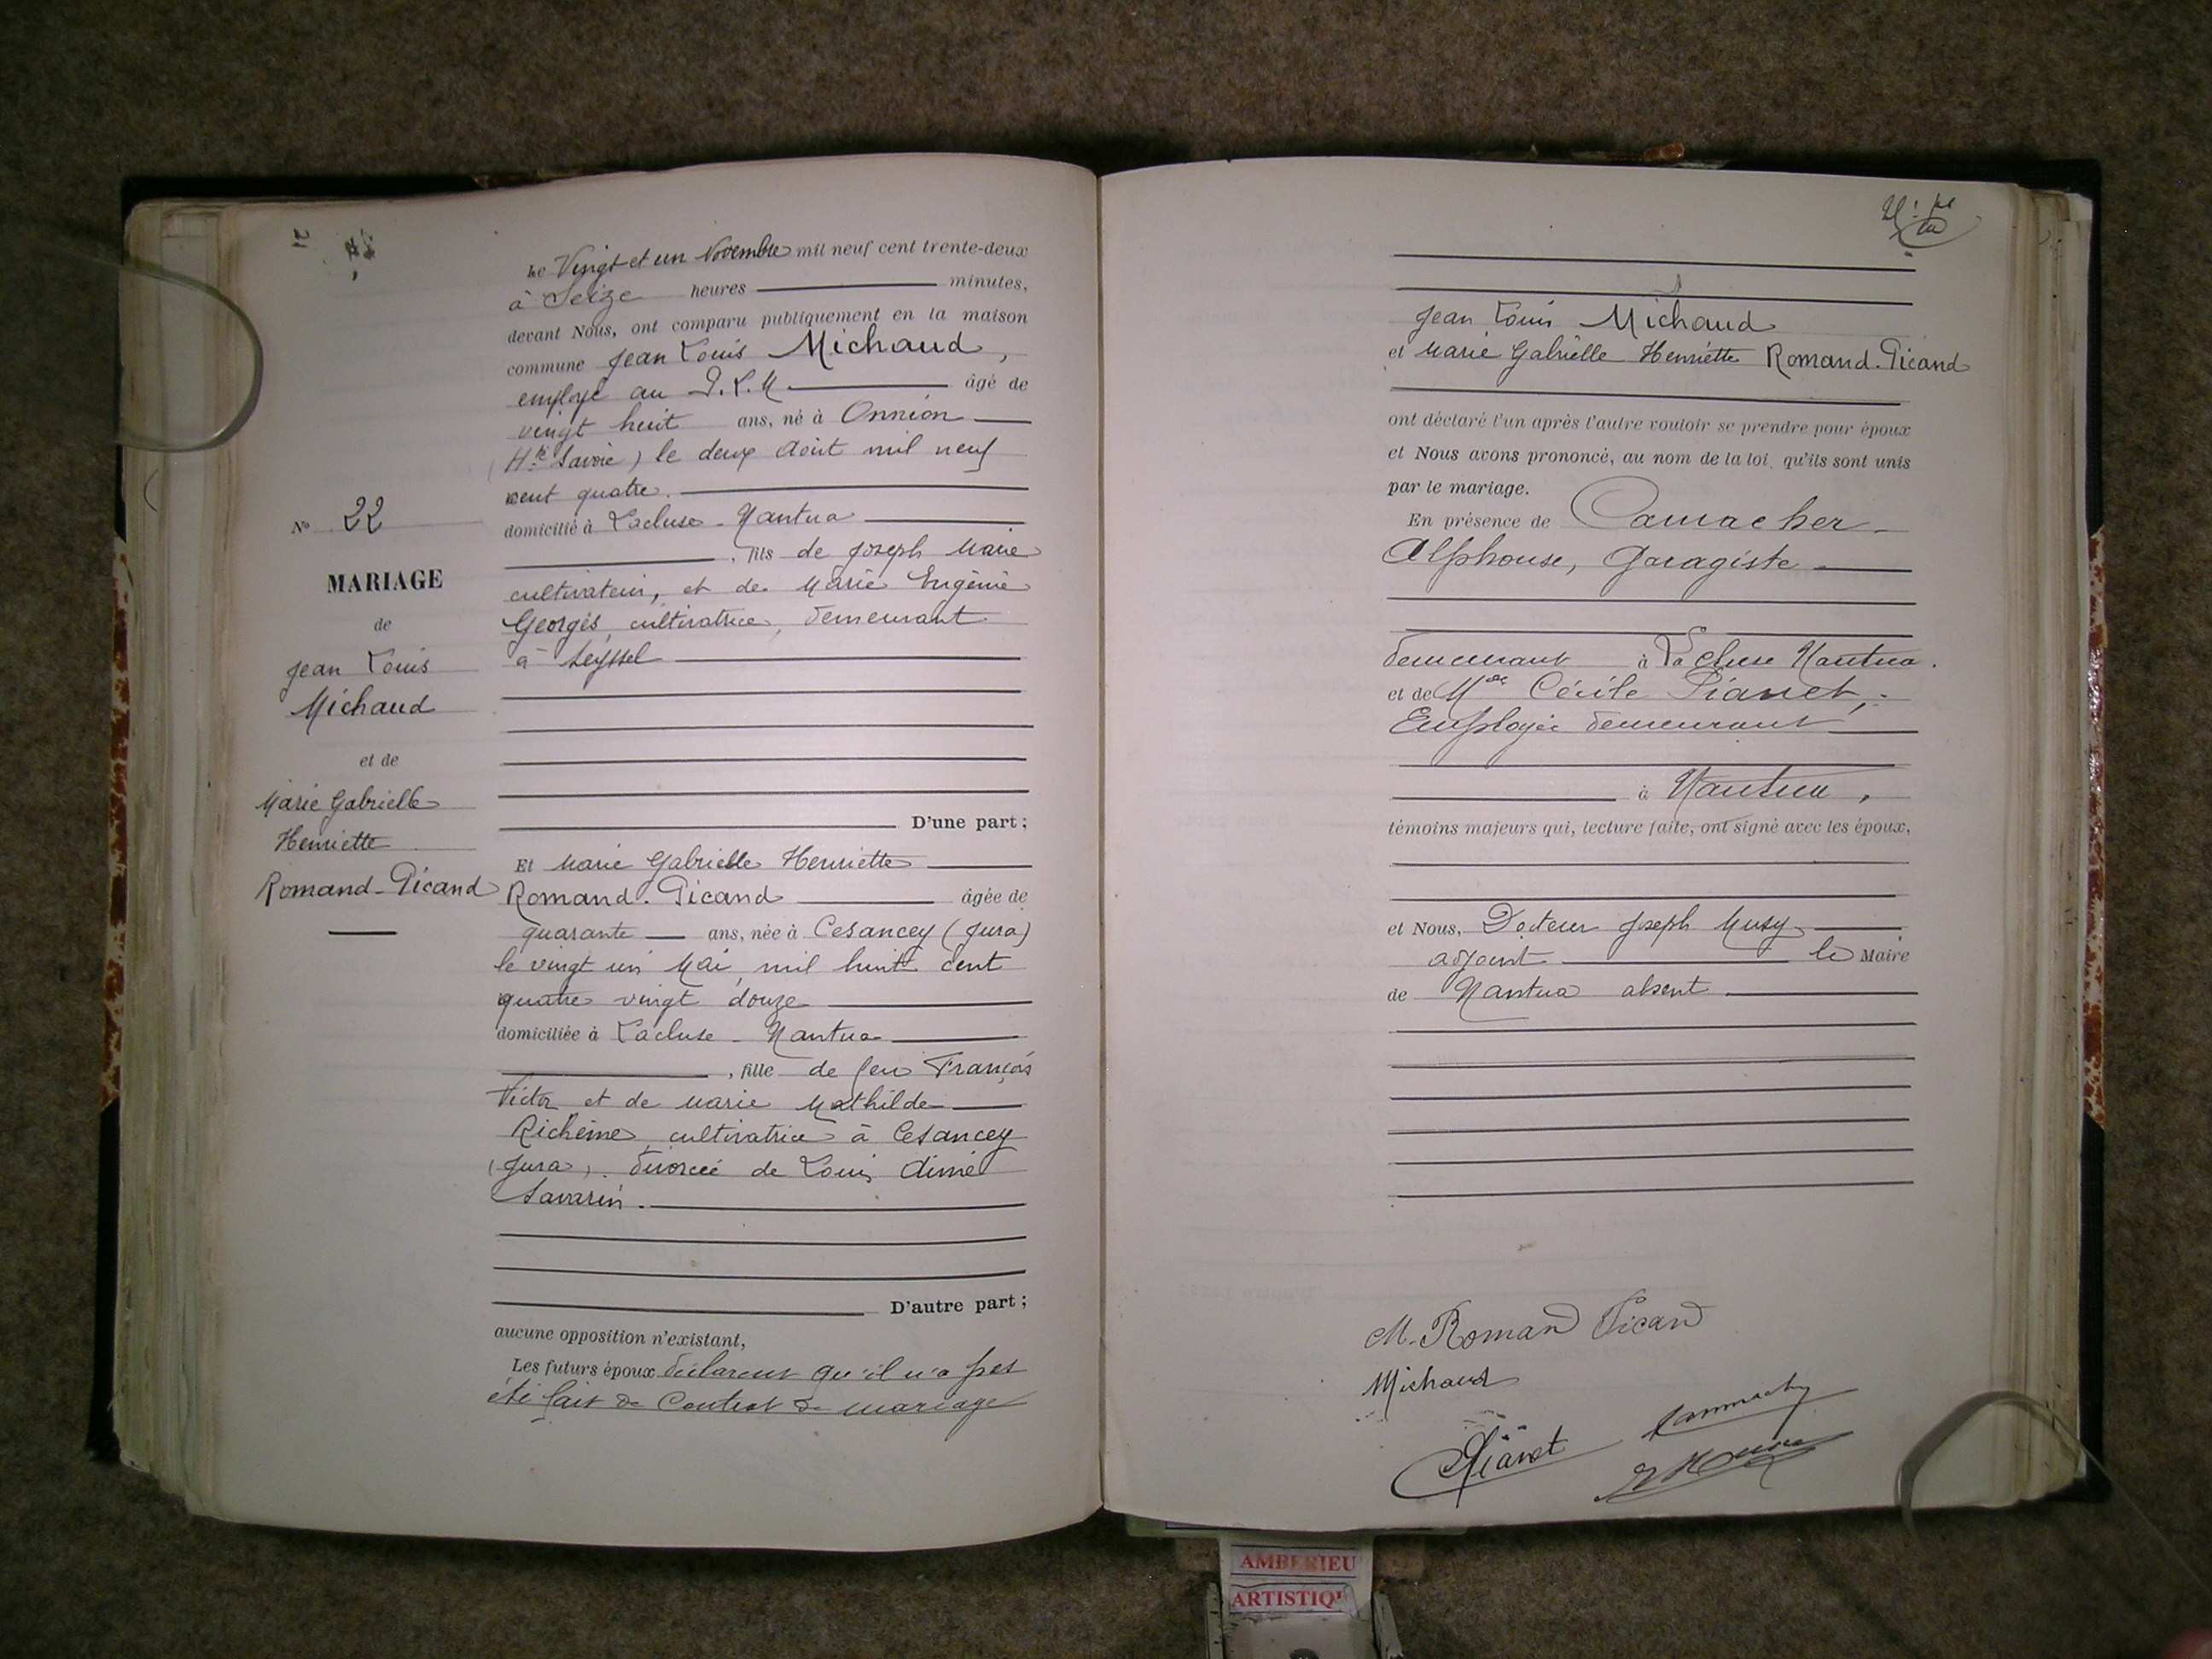 Le Vingt et un Novembre mil neuf cent trente-deux
à Seize heures minutes,
devant Nous, ont comparu publiquement en la maison
commune Jean Louis Michaud,
employé au P.L.M. âgé de
vingt huit ans, né à Onnion
(Hte Savoie) le deux Août mil neuf
cent quatre.
domicilié à Lacluse - Nantua
, fils de Joseph Marie
cultivateur, et de Marie Eugénie
Georgès, cultivatrice, demeurant
à Seyssel
D'une part;
No 22
MARIAGE
de
Jean Louis
Michaud
et de
Marie Gabrielle
Henriette
Romand-Picand
Et Marie Gabrielle Henriette
Romand-Picand âgée de
quarante ans, née à Cesancey (Jura)
le vingt un Mai mil huit cent
quatre vingt douze
domiciliée à Lacluse - Nantua
, fille de feu François
Victor et de Marie Mathilde
Richême, cultivatrice à Cesancey
(Jura), divorcée de Louis Aimé
Savarin.
D'autre part;
aucune opposition n'existant,
Les futurs époux déclarent qu'il n'a pas
été fait de Contrat de mariage
Jean Louis Michaud
et Marie Gabrielle Henriette Romand-Picand
ont déclaré l'un après l'autre vouloir se prendre pour époux
et Nous avons prononcé, au nom de la loi, qu'ils sont unis
par le mariage.
En présence de Camacher
Alphonse, Garagiste
demeurant à La cluse Nantua.
et de Mde Cécile Pianet,
Employée demeurant
à Nantua,
témoins majeurs qui, lecture faite, ont signé avec les époux,
et Nous, Docteur Joseph Musy
adjoint le Maire
de Nantua absent
M. Romand Picand
Michaud
Pianet
AMBERIEU
ARTISTIQ